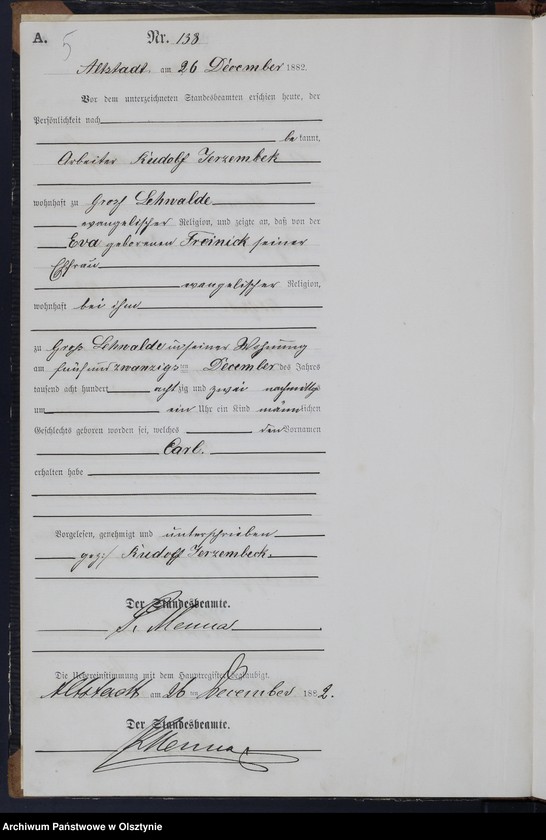 A. 5 Nr. 133
Altstadt am 26 December 1882.
Vor dem unterzeichneten Standesbeamten erschien heute, der
Persönlichkeit nach
be kannt,
Arbeiter Rudolf Jerzembek
wohnhaft zu Groß Lehwalde
evangelischer Religion, und zeigte an, daß von der
Eva geborenen Froinick seiner
Ehefrau
evangelischer Religion,
wohnhaft bei ihm
zu Groß Lehwalde in seiner Wohnung
am fünf und zwanzigsten December des Jahres
tausend acht hundert acht zig und zwei nachmittags
um ein Uhr ein Kind männlichen
Geschlechts geboren worden sei, welches den Vornamen
Carl.
erhalten habe
Vorgelesen, genehmigt und unterschrieben
gez: Rudolf Jerzembeck.
Der Standesbeamte.
Menna
Die Uebereinstimmung mit dem Hauptregister beglaubigt.
Altstadt am 26 ten December 1882.
Der Standesbeamte.
Menna
Archiwum Państwowe w Olsztynie